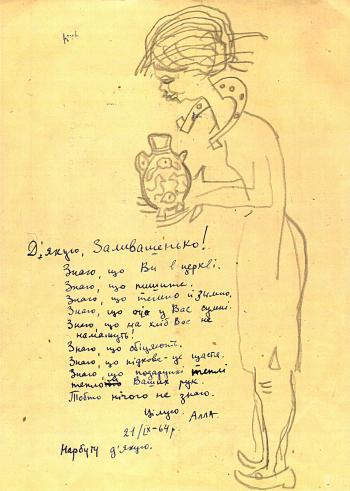 Київ
Дякую, Заливашенько!
Знаю, що Ви в церкві.
Знаю, що пишите.
Знаю, що темно й зимно.
Знаю, що очі у Вас сумні.
Знаю що на хліб Вос не
намажут!
Знаю, що обіцяють.
Знаю, що підкова - це щастя.
Знаю, що подарунки теплі
теплом Ваших рук.
Тобто нічого не знаю.
Цілую. Алла
21/IX-64 р.
Нарбуту дякую.